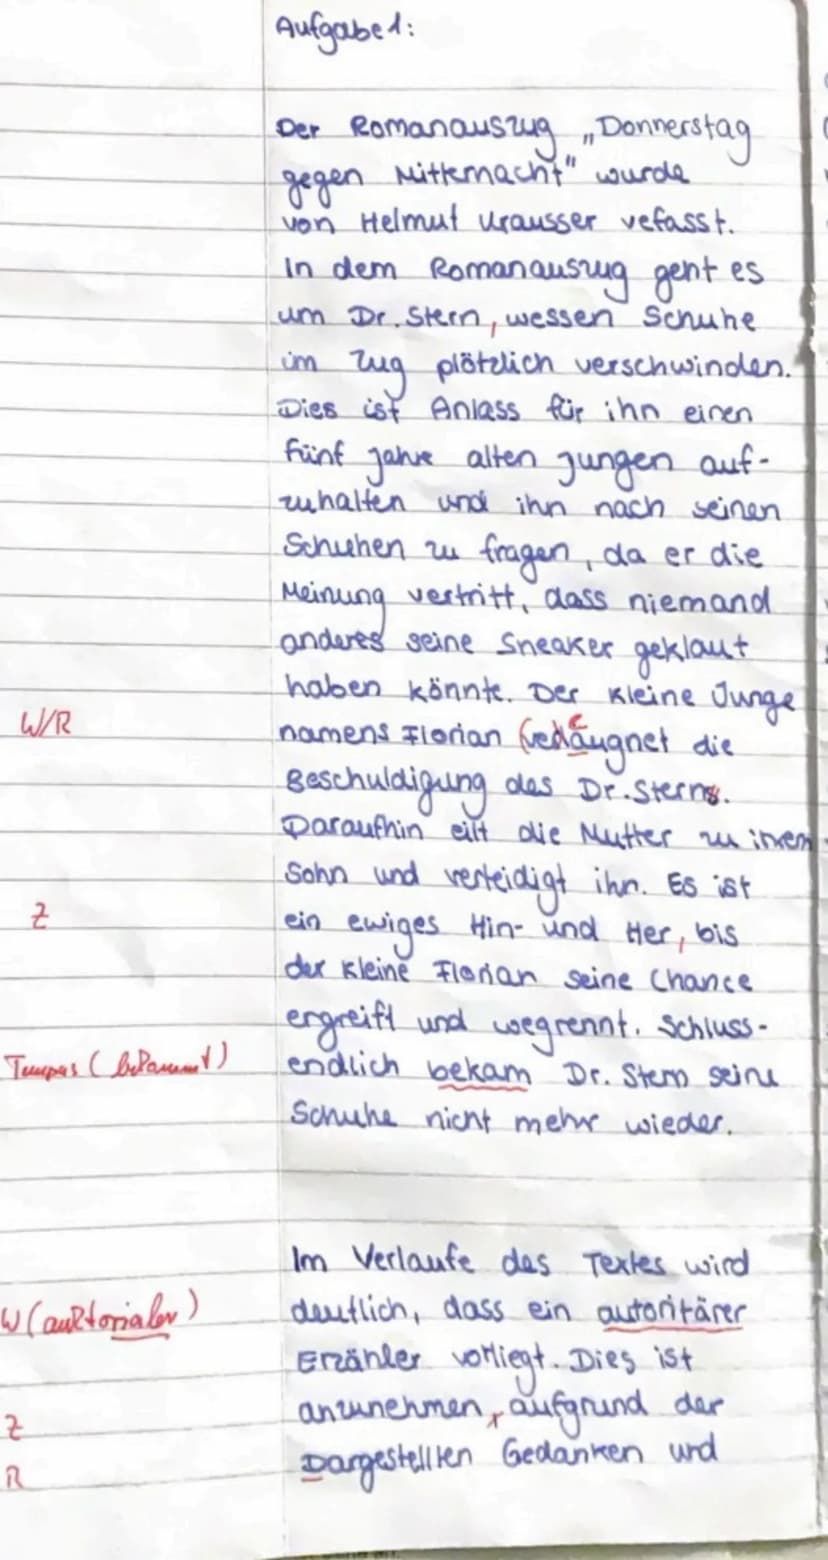 Aufgabe 1:
Der Romanauszug „Donnerstag
gegen Mitternacht" wurde
von Helmut Krausser vefasst.
In dem Romanauszug geht es
um Dr. Stern, wessen Schuhe
im Zug plötzlich verschwinden.
Dies ist Anlass für ihn einen
fünf Jahre alten Jungen auf-
zuhalten und ihn nach seinen
Schuhen zu fragen, da er die
Meinung vertritt, dass niemand
anderes seine Sneaker geklaut
haben könnte. Der kleine Junge
W/R
namens Florian die
Beschuldigung des Dr. Sterns.
Daraufhin eilt die Mutter zu ihrem
Sohn und verteidigt ihn. Es ist
Z
ein ewiges Hin- und Her, bis
der kleine Florian seine Chance
ergreift und wegrennt. Schluss-
Tempus (bekommt)
endlich bekam Dr. Stern seine
Schuhe nicht mehr wieder.
Im Verlaufe des Textes wird
W (auktorialer)
deutlich, dass ein autoritärer
Erzähler vorliegt. Dies ist
Z
anzunehmen, aufgrund der
R
Dargestellten Gedanken und